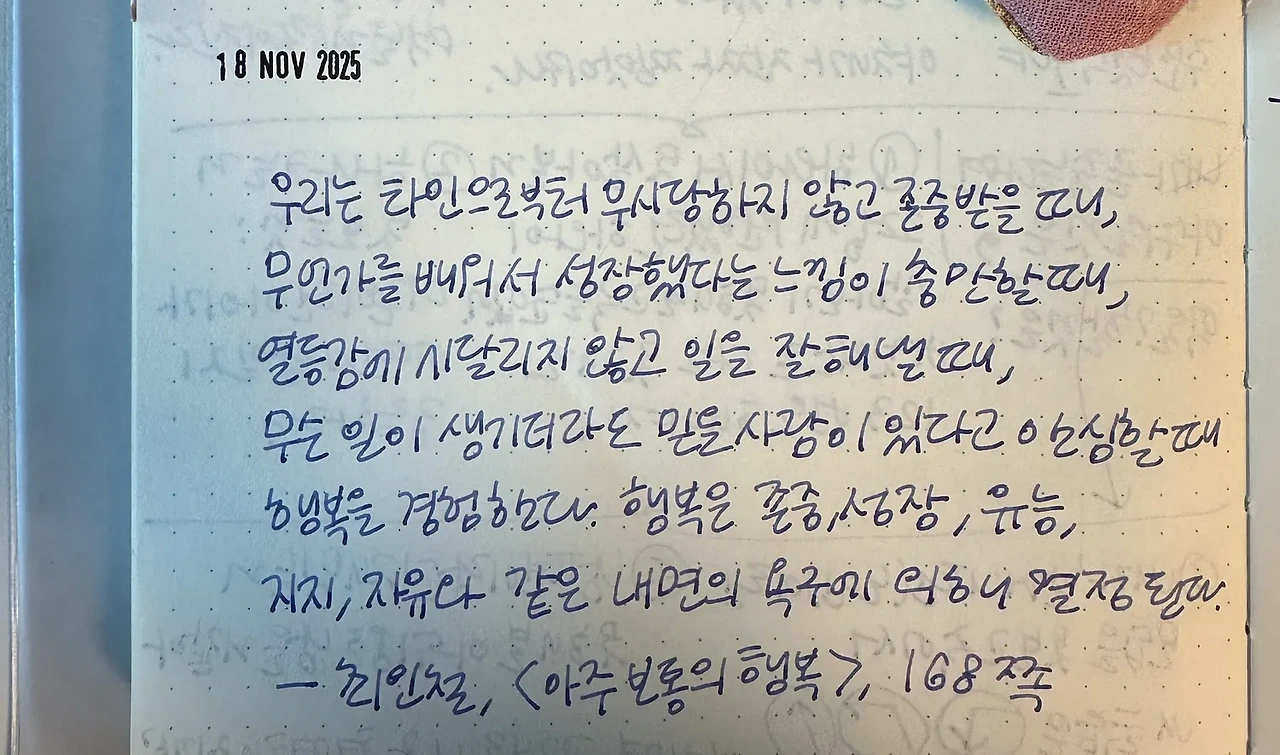 18 NOV 2025
우리는 타인으로부터 무시당하지 않고 존중받을 때,
무언가를 배워서 성장했다는 느낌이 충만할 때,
열등감에 시달리지 않고 일을 잘 해낼 때,
무슨 일이 생기더라도 믿을 사람이 있다고 안심할 때
행복을 경험한다. 행복은 존중, 성장, 유능,
지지, 자유와 같은 내면의 욕구에 의해 결정된다.
— 최인철, <아주 보통의 행복>, 168쪽